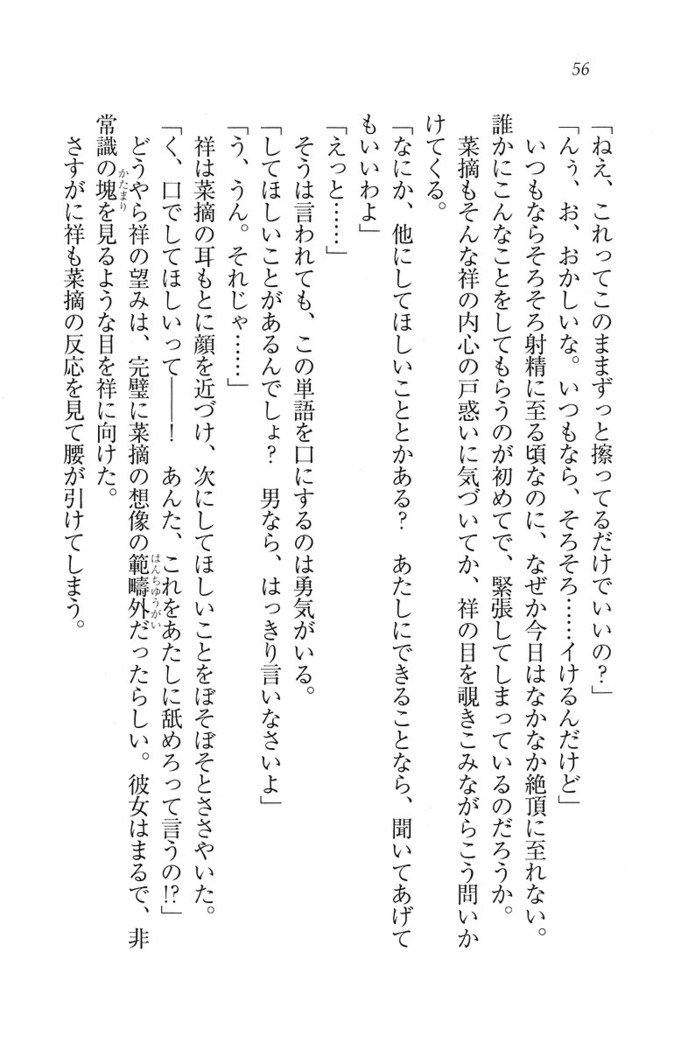 56
「ねえ、これってこのままずっと擦ってるだけでいいの？」
「んぅ、お、おかしいな。いつもなら、そろそろ……イけるんだけど」
いつもならそろそろ射精に至る頃なのに、なぜか今日はなかなか絶頂に至れない。
誰かにこんなことをしてもらうのが初めてで、緊張してしまっているのだろうか。
菜摘もそんな祥の内心の戸惑いに気づいてか、祥の目を覗きこみながらこう問いか
けてくる。
「なにか、他にしてほしいこととかある？　あたしにできることなら、聞いてあげて
もいいわよ」
「えっと……」
そうは言われても、この単語を口にするのは勇気がいる。
「してほしいことがあるんでしょ？　男なら、はっきり言いなさいよ」
「う、うん。それじゃ……」
祥は菜摘の耳もとに顔を近づけ、次にしてほしいことをぼそぼそとささやいた。
「く、口でしてほしいって――！　あんた、これをあたしに舐めろって言うの!?」
どうやら祥の望みは、完璧に菜摘の想像の範疇外はんちゅうがいだったらしい。彼女はまるで、非
常識の塊かたまりを見るような目を祥に向けた。
さすがに祥も菜摘の反応を見て腰が引けてしまう。